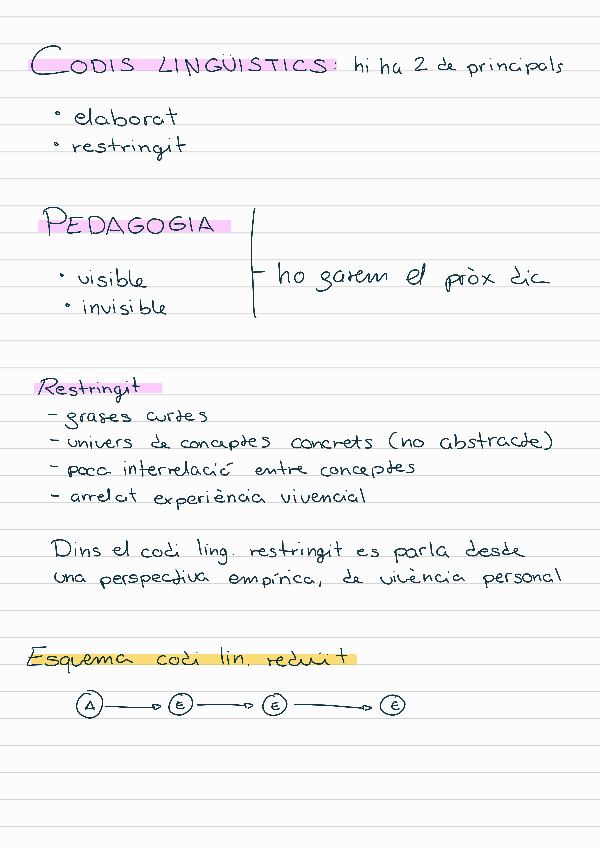 CODIS LINGÜISTICS: hi ha 2 de principals
• elaborat
• restringit
PEDAGOGIA
• visible
• invisible
ho farem el pròx dia
Restringit
- frases curtes
- univers de conceptes concrets (no abstracte)
- poca interrelació entre conceptes
- arrelat experiència vivencial
Dins el codi ling. restringit es parla desde
una perspectiva empírica, de vivència personal
Esquema codi lin. reduït
A → E → E → E